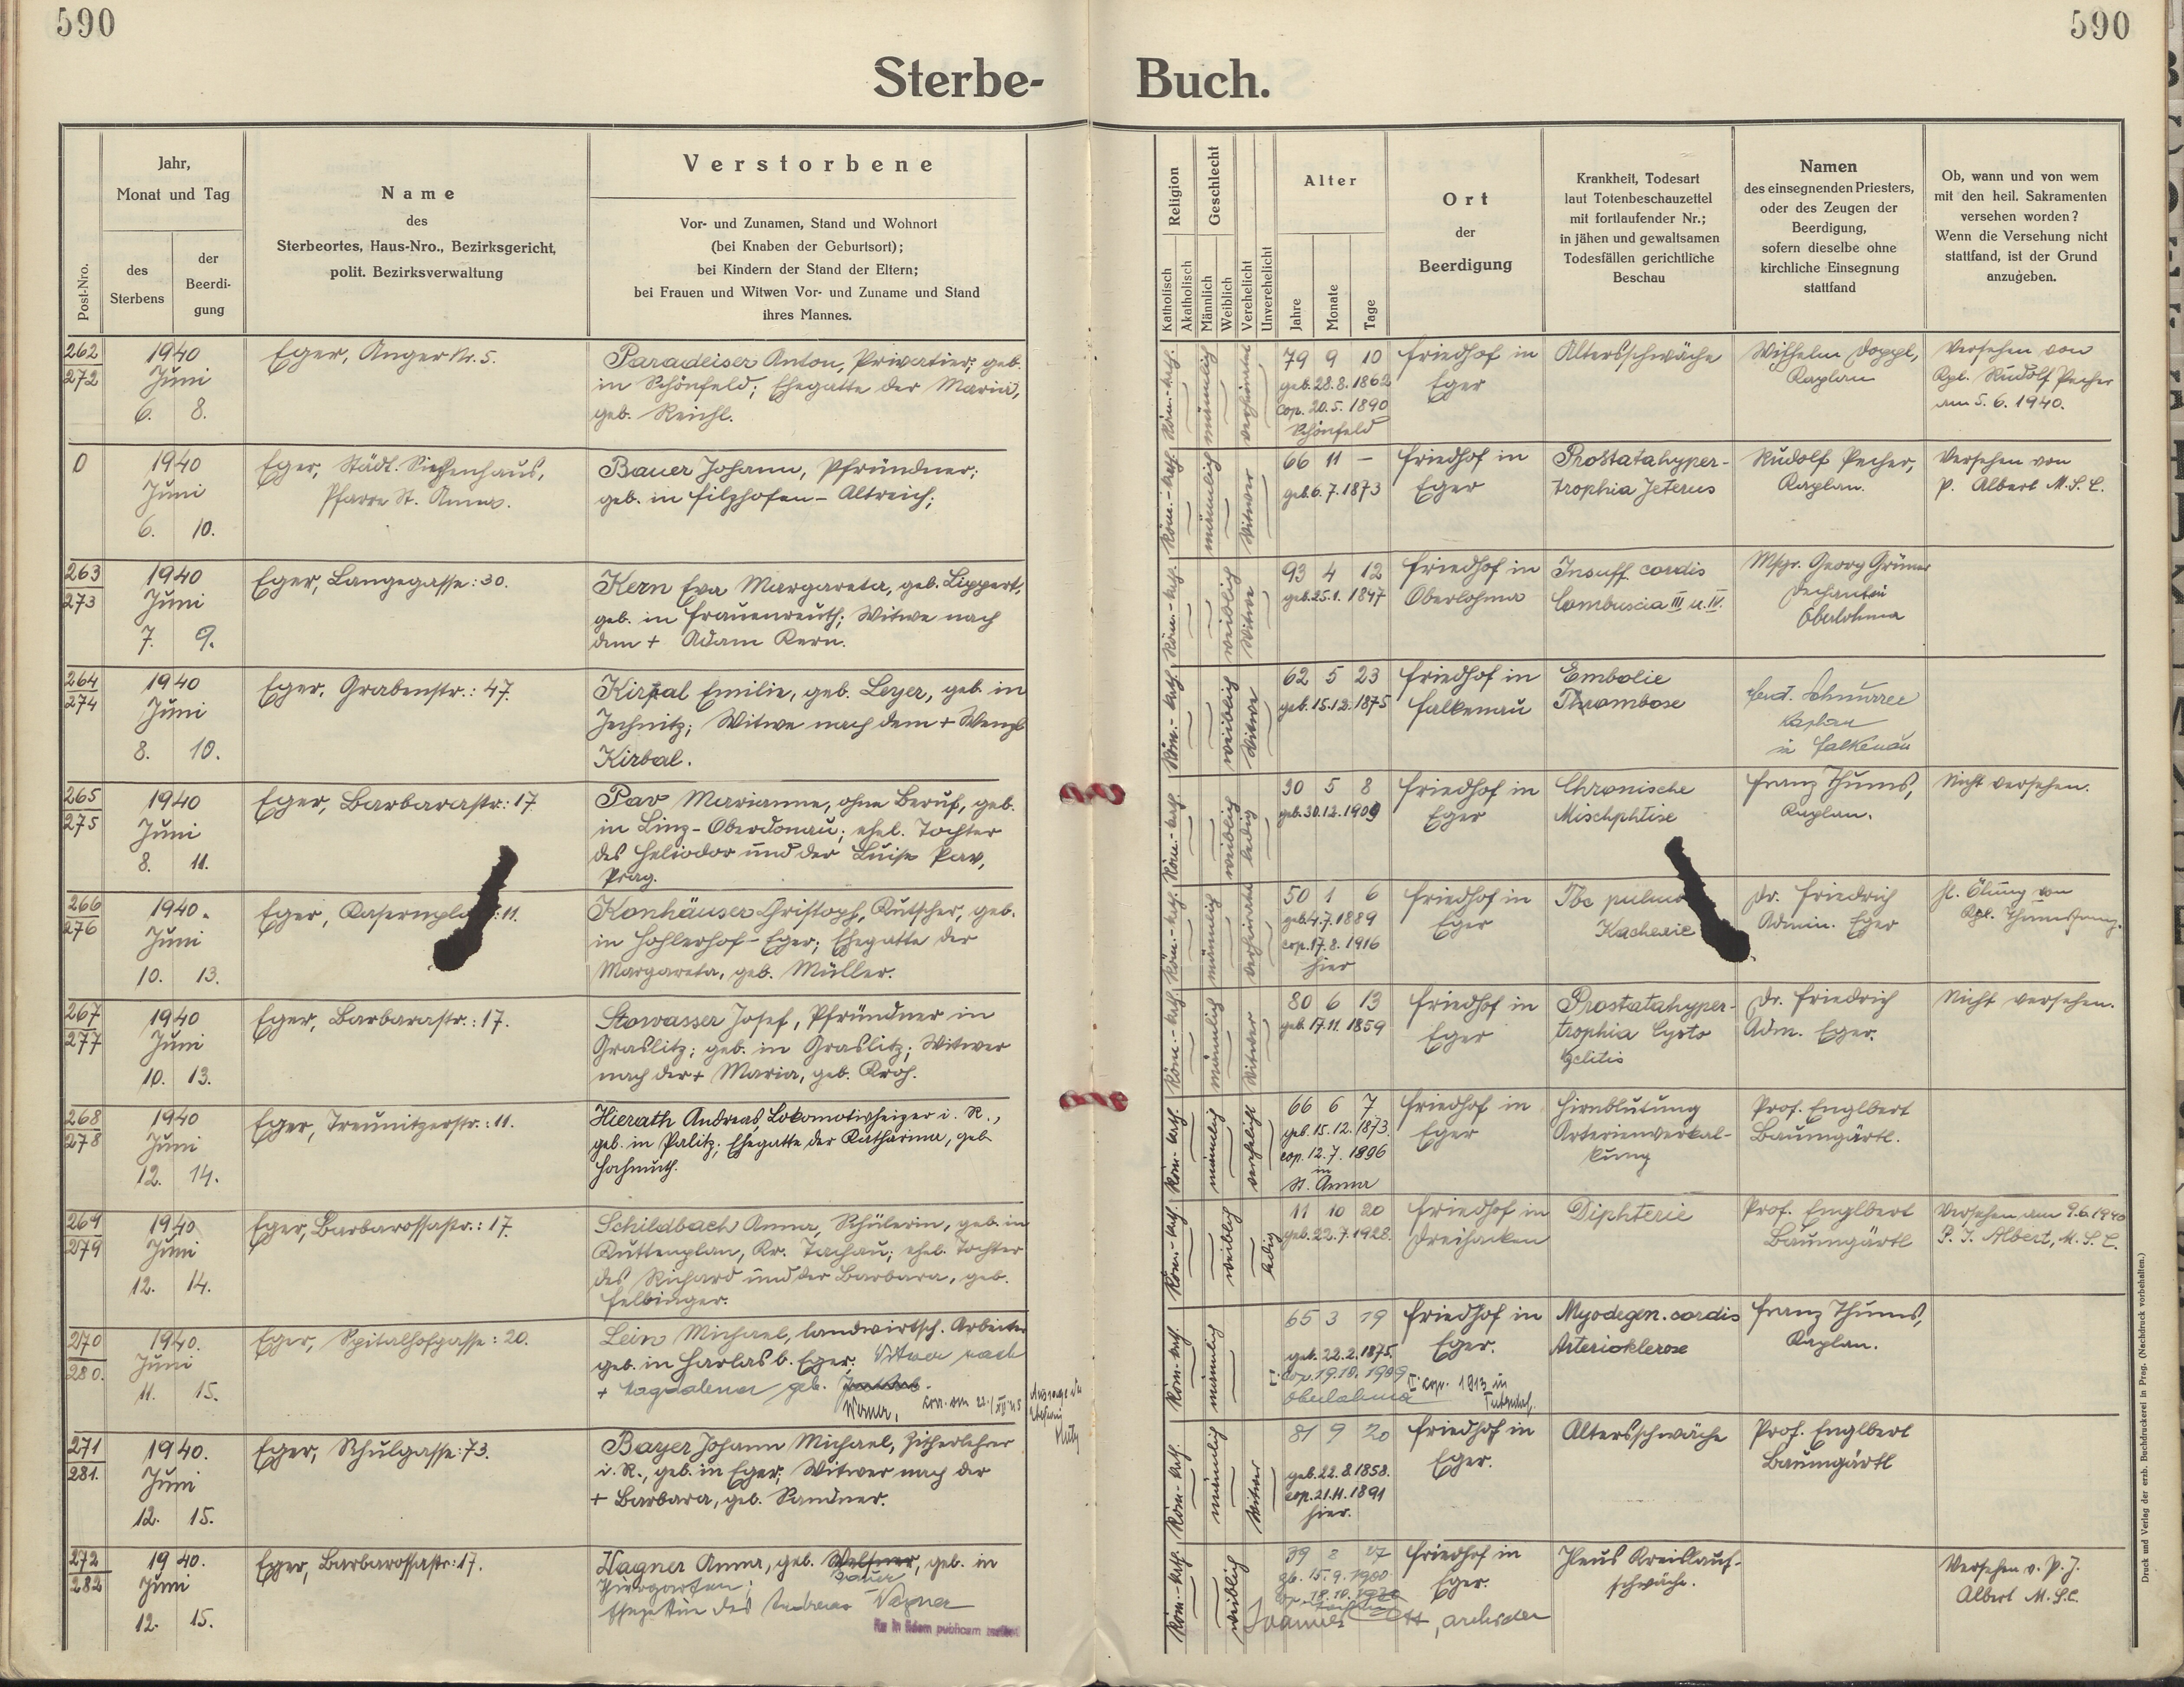 590
590
Sterbe-Buch.
Post-Nro.
Jahr,
Monat und Tag
des
Sterbens
der
Beerdi-
gung
Name
des
Sterbeortes, Haus-Nro., Bezirksgericht,
polit. Bezirksverwaltung
Verstorbene
Vor- und Zunamen, Stand und Wohnort
(bei Knaben der Geburtsort);
bei Kindern der Stand der Eltern;
bei Frauen und Witwen Vor- und Zuname und Stand
ihres Mannes.
Religion
Katholisch
Akatholisch
Geschlecht
Männlich
Weiblich
Verehelicht
Unverehelicht
Alter
Jahre
Monate
Tage
Ort
der
Beerdigung
Krankheit, Todesart
laut Totenbeschauzettel
mit fortlaufender Nr.;
in jähen und gewaltsamen
Todesfällen gerichtliche
Beschau
Namen
des einsegnenden Priesters,
oder des Zeugen der
Beerdigung,
sofern dieselbe ohne
kirchliche Einsegnung
stattfand
Ob, wann und von wem
mit den heil. Sakramenten
versehen worden?
Wenn die Versehung nicht
stattfand, ist der Grund
anzugeben.
262
272
1940
Juni
6. 8.
Eger, Anger Nr. 5.
Paradeiser Anton, Privatier; geb.
in Schönfeld; Ehegatte der Maria,
geb. Reichl.
Röm.-kath. männlich verheiratet
79 9 10
geb. 28.8.1862
cop. 20.5.1890
Schönfeld
Friedhof in
Eger
Altersschwäche
Wilhelm Doppl,
Kaplan
Versehen von
Kpl. Rudolf Pecher
am 5.6.1940.
0
1940
Juni
6. 10.
Eger, Städt. Siechenhaus,
Pfarre St. Anna.
Bauer Johann, Pfründner;
geb. in Filzhofen - Altreich;
Röm.-kath. männlich Witwer
66 11 -
geb. 6.7.1873
Friedhof in
Eger
Prostatahyper-
trophia Jeterus
Rudolf Pecher,
Kaplan.
Versehen von
P. Albert M.S.C.
263
273
1940
Juni
7. 9.
Eger, Langegasse: 30.
Kern Eva Margareta, geb. Lippert,
geb. in Frauenreuth; Witwe nach
dem + Adam Kern.
Röm.-kath. weiblich Witwe
93 4 12
geb. 25.1.1847
Friedhof in
Oberlohma
Insuff. cordis
Combuscia III u. IV.
Msgr. Georg Grüner
Dechant in
Oberlohma
264
274
1940
Juni
8. 10.
Eger, Grabenstr.: 47.
Kirbal Emilie, geb. Loyer, geb. in
Jechnitz; Witwe nach dem + Wenzl
Kirbal.
Röm.-kath. weiblich Witwe
62 5 23
geb. 15.12.1875
Friedhof in
Falkenau
Embolie
Thrombose
Kaplan
in Falkenau
265
275
1940
Juni
8. 11.
Eger, Barbarastr.: 17
Pav Marianne, ohne Beruf, geb.
in Linz - Oberdonau; ehel. Tochter
des Heliodor und der Luise Pav,
Prag.
Röm.-kath. weiblich ledig
30 5 8
geb. 30.12.1909
Friedhof in
Eger
Chronische
Mischphtise
Franz Thums,
Kaplan.
Nicht versehen.
266
276
1940.
Juni
10. 13.
Eger, Kasernpla :11.
Konhäuser Christoph, Kutscher, geb.
in Hohlerhof - Eger; Ehegatte der
Margareta, geb. Müller.
Röm.-kath. männlich verheiratet
50 1 6
geb. 4.7.1889
cop. 17.8.1916
hier
Friedhof in
Eger
Tbc pulmo
Kachexie
Dr. Friedrich
Admin. Eger
Hl. Ölung von
Kpl. Thums Franz.
267
277
1940
Juni
10. 13.
Eger, Barbarastr.: 17.
Stowasser Josef, Pfründner in
Graslitz; geb. in Graslitz; Witwer
nach der + Maria, geb. Kroh.
Röm.-kath. männlich Witwer
80 6 13
geb. 17.11.1859
Friedhof in
Eger
Prostatahyper-
trophia Cysto
Dr. Friedrich
Adm. Eger.
Nicht versehen.
268
278
1940
Juni
12. 14.
Eger, Treunitzerstr.: 11.
Hierath Andreas, Lokomotivheizer i. R.,
geb. in Palitz; Ehegatte der Katharina, geb.
Hochmuth.
Röm.-kath. männlich verehelicht
66 6 7
geb. 15.12.1873.
cop. 12.7.1896
in
St. Anna
Friedhof in
Eger
Hirnblutung
Arterienverkal-
kung
Prof. Englbert
Baumgärtl.
269
279
1940
Juni
12. 14.
Eger, Barbarossastr.: 17.
Schildbach Anna, Schülerin, geb. in
Kuttenplan, Kr. Tachau; ehel. Tochter
des Richard und der Barbara, geb.
Felbinger.
Röm.-kath. weiblich ledig
11 10 20
geb. 22.7.1928.
Friedhof in
Dreihacken
Diphterie
Prof. Englbert
Baumgärtl
Versehen am 9.6.1940
P. J. Albert, M.S.C.
270
280.
1940.
Juni
11. 15.
Eger, Spitalhofgasse: 20.
Lein Michael, landwirtsch. Arbeiter
geb. in Harlas b. Eger; Witwer nach
+ Magdalena geb.
Werner,
Röm.-kath. männlich
65 3 19
geb. 22.2.1875.
cop. 19.10.1909
Oberlohma
II. cop. 1913 in
Friedhof in
Eger.
Myodegen. cordis
Arteriosklerose
Franz Thums,
Kaplan.
271
281.
1940.
Juni
12. 15.
Eger, Schulgasse: 73.
Bayer Johann Michael, Zitherlehrer
i. R., geb. in Eger; Witwer nach der
+ Barbara, geb. Sandner.
Röm.-kath. männlich Witwer
81 9 20
geb. 22.8.1858.
cop. 21.11.1891
hier.
Friedhof in
Eger.
Altersschwäche
Prof. Englbert
Baumgärtl
272
282
1940.
Juni
12. 15.
Eger, Barbarossastr.: 17.
Wagner Anna, geb. Welsner, geb. in
Bauer
Tirngarten;
Ehegattin des Andreas Wagner
Röm.-kath. weiblich
39 8 27
geb. 15.9.1900.
Friedhof in
Eger.
Ileus Kreislauf-
schwäche.
Versehen v. P. J.
Albert M.S.C.
Druck und Verlag der erzb. Buchdruckerei in Prag. (Nachdruck vorbehalten.)